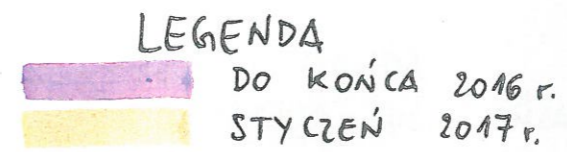 LEGENDA
DO KOŃCA 2016 r.
STYCZEŃ 2017 r.